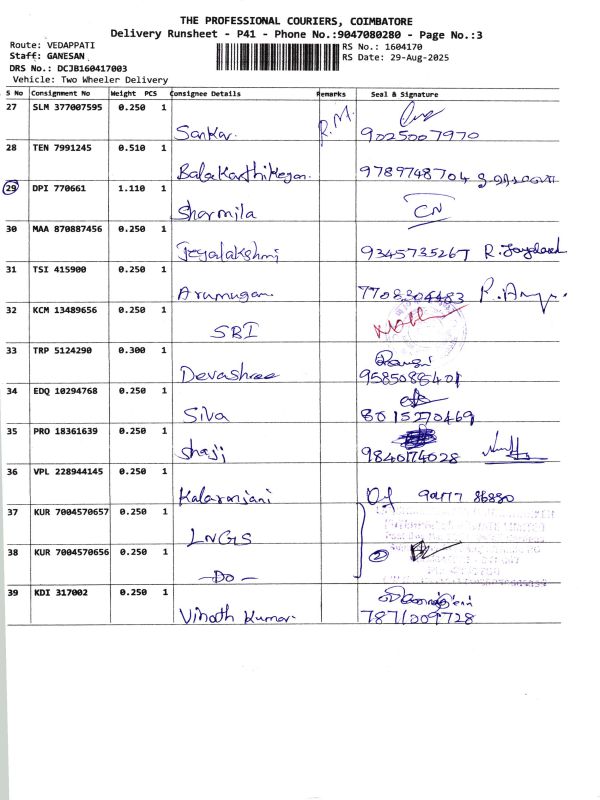 THE PROFESSIONAL COURIERS, COIMBATORE
Delivery Runsheet - P41 - Phone No.:9047080280 - Page No.:3
Route: VEDAPPATI RS No.: 1604170
Staff: GANESAN RS Date: 29-Aug-2025
DRS No.: DCJB160417003
Vehicle: Two Wheeler Delivery
S No Consignment No Weight PCS Consignee Details Remarks Seal & Signature
27 SLM 377007595 0.250 1
Sankar. R.M. 9025007970
28 TEN 7991245 0.510 1
Balakarthikeyan. 9789748704
29 DPI 770661 1.110 1
Sharmila CN
30 MAA 870887456 0.250 1
Jeyalakshmi 9345735267 R.
31 TSI 415900 0.250 1
Arumugam 7708304483
32 KCM 13489656 0.250 1
SBI
33 TRP 5124290 0.300 1
Devashree 9585088401
34 EDQ 10294768 0.250 1
Siva 8015270469
35 PRO 18361639 0.250 1
Shaji 9840174028
36 VPL 228944145 0.250 1
86880
37 KUR 7004570657 0.250 1
LNGS
38 KUR 7004570656 0.250 1
2
-Do-
39 KDI 317002 0.250 1
Vinoth Kumar. 7871009728